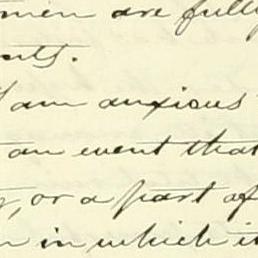 men are fully
nts.
I am anxious
an event that
, or a part of
n in which it